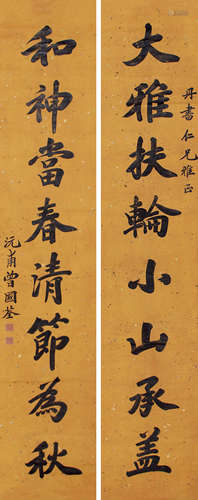 丹書仁兄雅正
大雅扶輪小山承盖
和神當春清節為秋
沅甫曾國荃